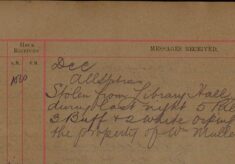 HOUR RECEIVED
MESSAGES RECEIVED.
Dec
All Sptns
Stolen from Library Hall
during last night 5
3 Buff & 2 White
the property of Wm Mulla